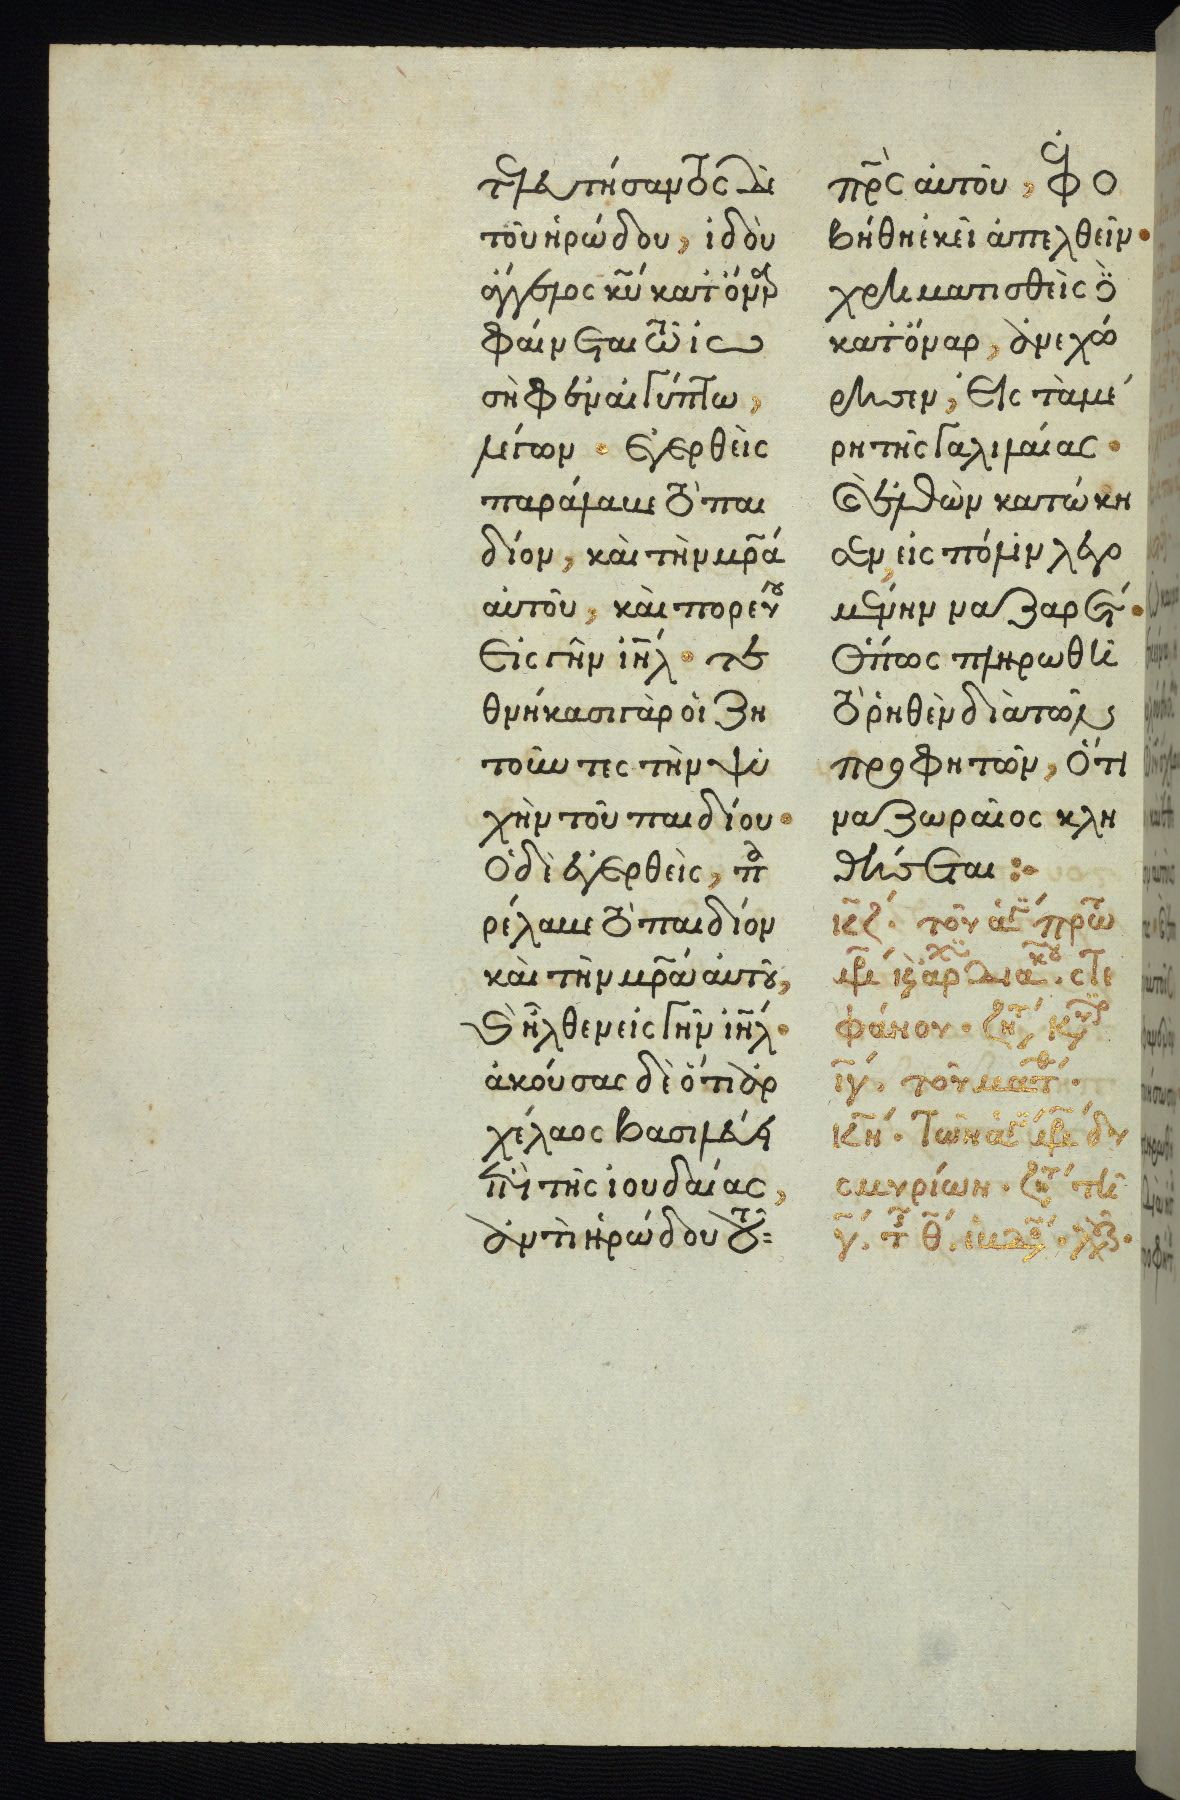 τελευτήσαντος δὲ
τοῦ ἡρώδου, ἰδοὺ
ἄγγελος κυ̅ κατ' ὄναρ
φαίνεται τῶ ἰω
σὴφ ἐν αἰγύπτω,
λέγων · ἐγερθεὶς
παράλαβε τὸ παι
δίον, καὶ τὴν μρ̅α
αὐτοῦ, καὶ πορεύου
εἰς γῆν ιη̅λ · τε
θνήκασι γὰρ οἱ ζη
τοῦντες τὴν ψυ
χὴν τοῦ παιδίου ·
ὁ δὲ ἐγερθεὶς, πα
ρέλαβε τὸ παιδίον
καὶ τὴν μρ̅α αὐτοῦ,
καὶ ἦλθεν εἰς γῆν ιη̅λ ·
ἀκούσας δὲ ὅτι ἀρ
χέλαος βασιλεύει
ἐπὶ τῆς ἰουδαίας,
ἀντὶ ἡρώδου τοῦ
πρ̅ς αὐτοῦ, ἐφο
βήθη ἐκεῖ ἀπελθεῖν ·
χρηματισθεὶς δὲ
κατ' ὄναρ, ἀνεχώ
ρησεν, εἰς τὰ μέ
ρη τῆς γαλιλαίας ·
καὶ ἐλθὼν κατώκη
σεν, εἰς πόλιν λεγο
μένην ναζαρέτ ·
ὅπως πληρωθῆ
τὸ ῥηθὲν διὰ τῶν
προφητῶν, ὅτι
ναζωραῖος κλη
θήσεται :·
κζ. τοῦ ἁγ πρω
στε
φάνου · ζητ κυρ
ιγ. τοῦ ματθ ·
κη · τῶν ἁγ δυ
σμυρίων · ζητ τῆ
γ. θ.